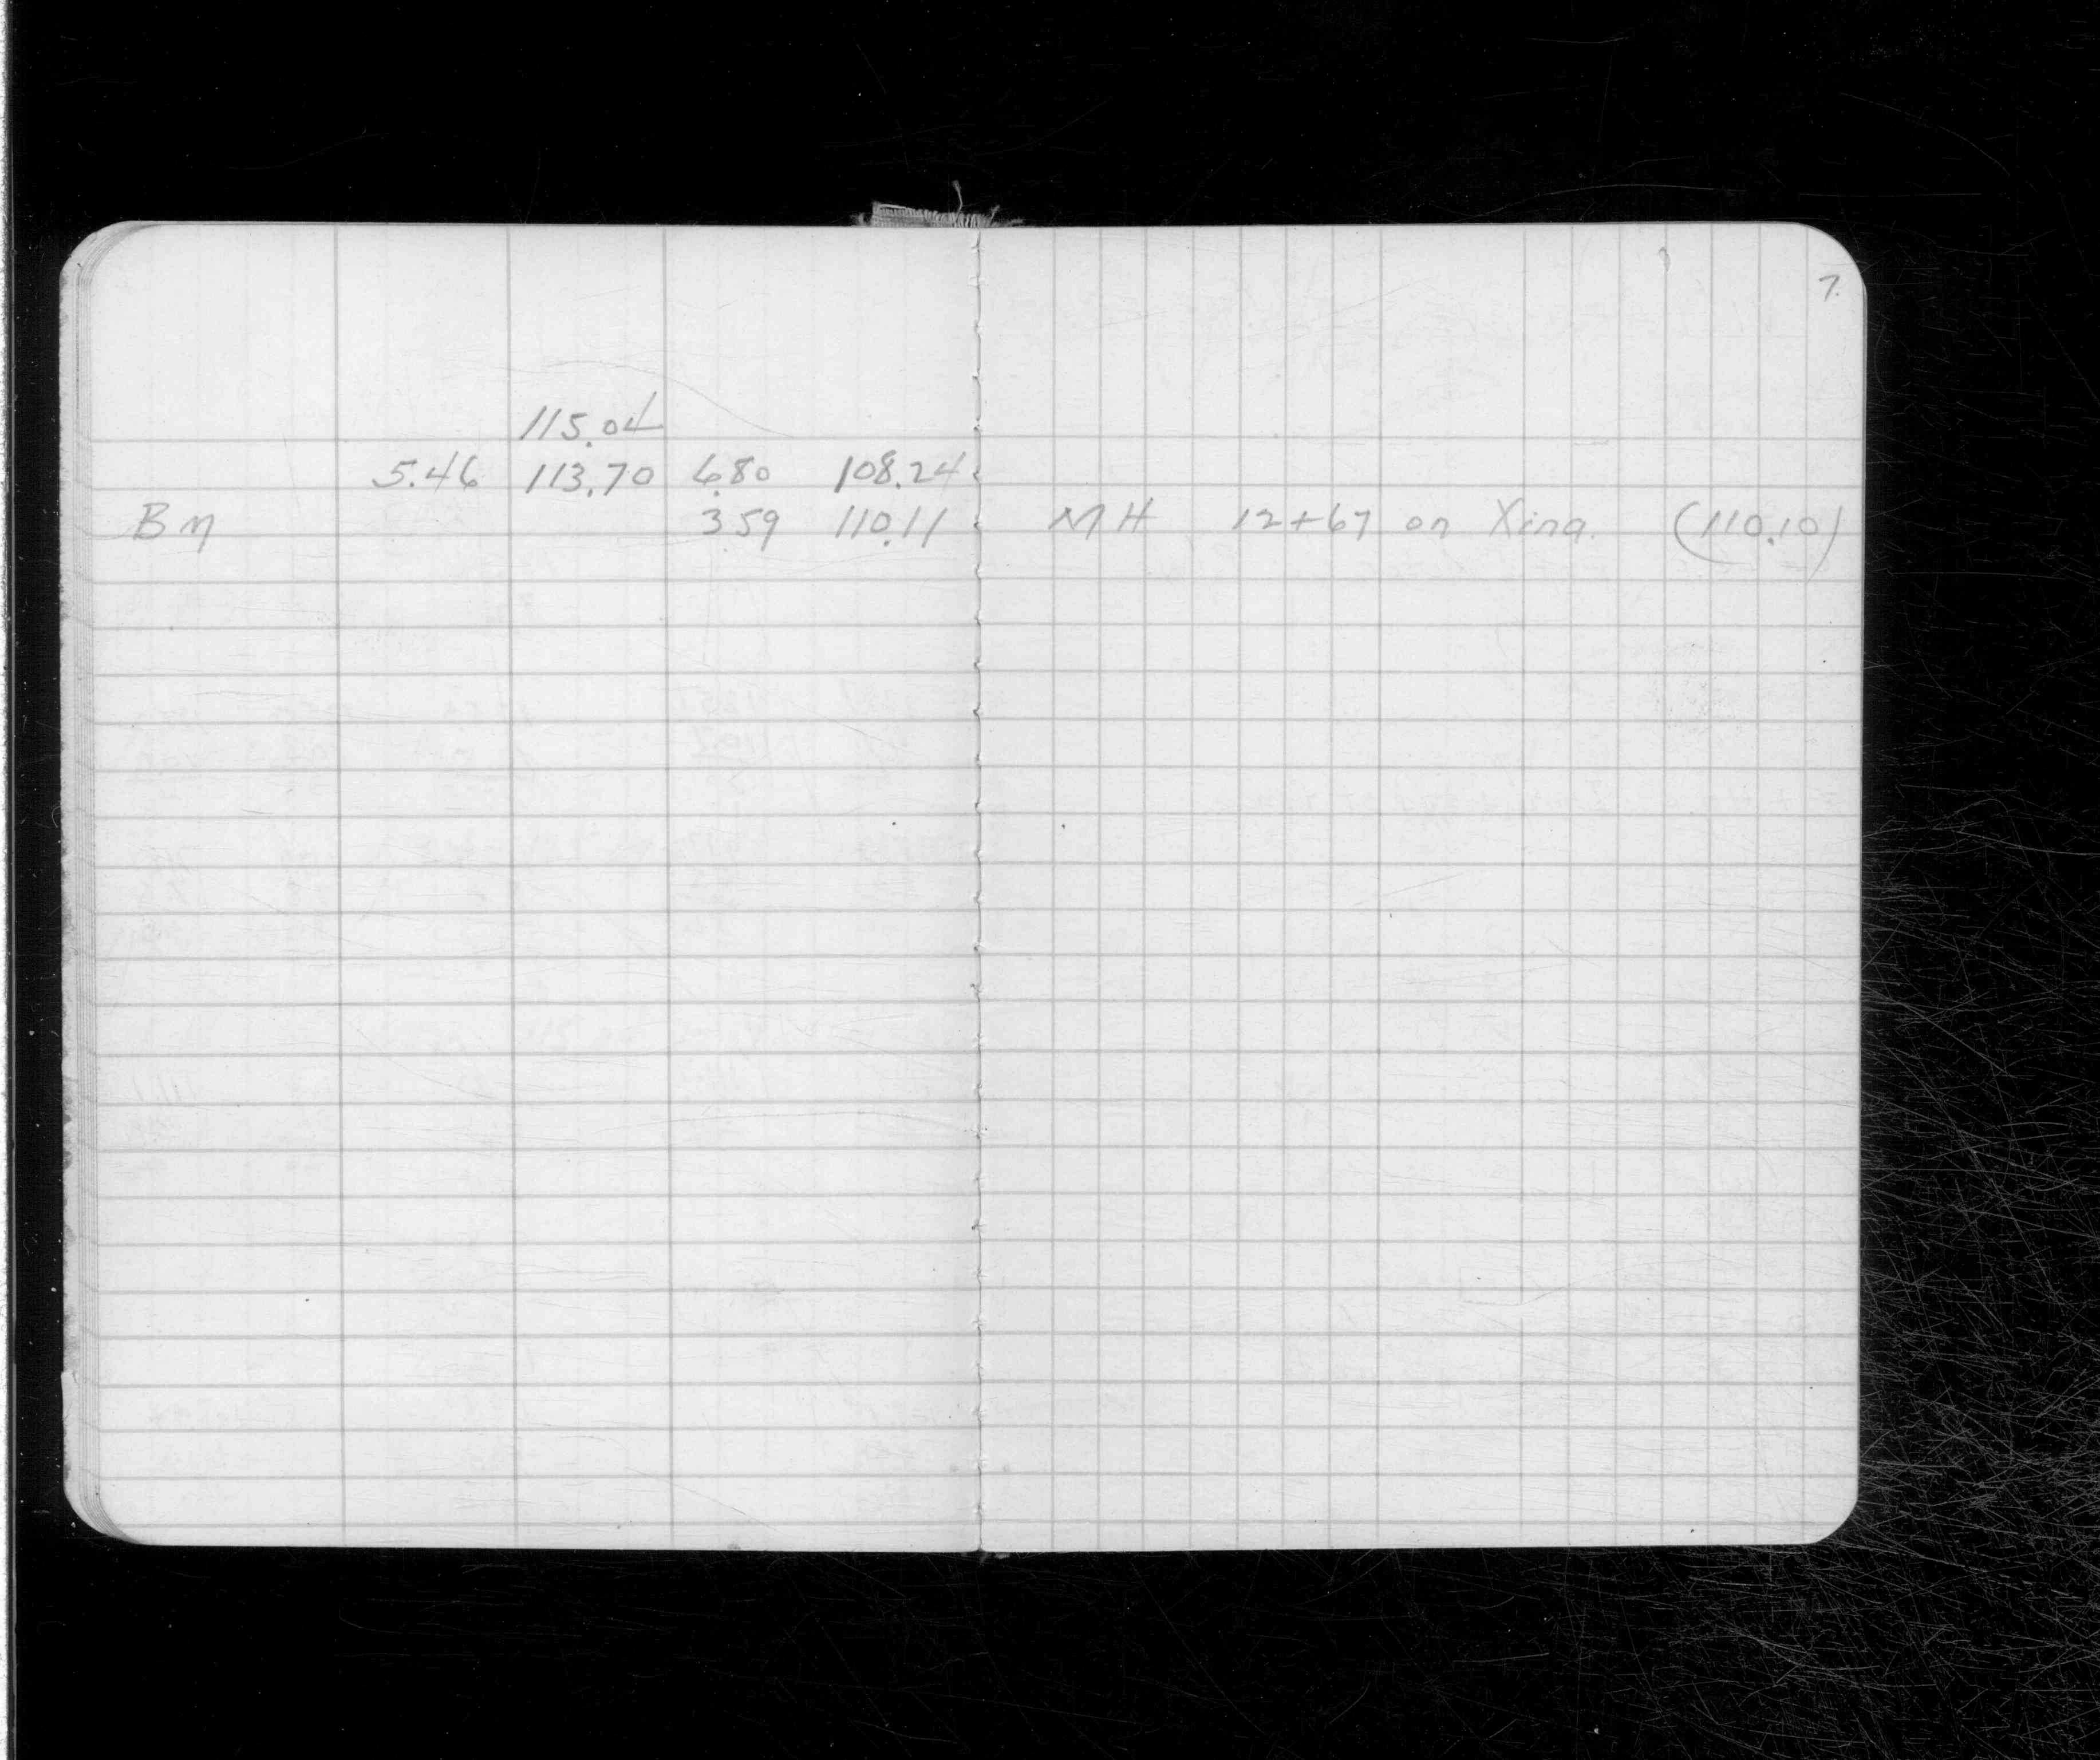 7.
115.04
5.46 113.70 6.80 108.24
BM 3.59 110.11 MH 12+67 on Xing. (110.10)